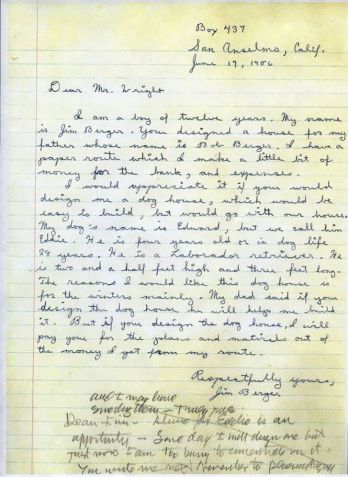 Box 437
San Anselmo, Calif.
June 19, 1956
Dear Mr. Wright
I am a boy of twelve years. My name
is Jim Berger. You designed a house for my
father whose name is Bob Berger. I have a
paper route which I make a little bit of
money for the bank, and expenses.
I would appreciate it if you would
design me a dog house, which would be
easy to build, but would go with our house.
My dog's name is Edward, but we call him
Eddie. He is four years old or in dog life
28 years. He is a Laborador retriever. He
is two and a half feet high and three feet long.
The reasons I would like this dog house is
for the winters mainly. My dad said if you
design the dog house he will help me build
it. But if you design the dog house, I will
pay you for the plans and matirels out of
the money I get from my route.
Respectfully yours,
Jim Berger
and I may have
Dear Jim - House for Eddie is an
opportunity - Some day I will design one but
just now I am too busy to concentrate on it.
You write me next November to